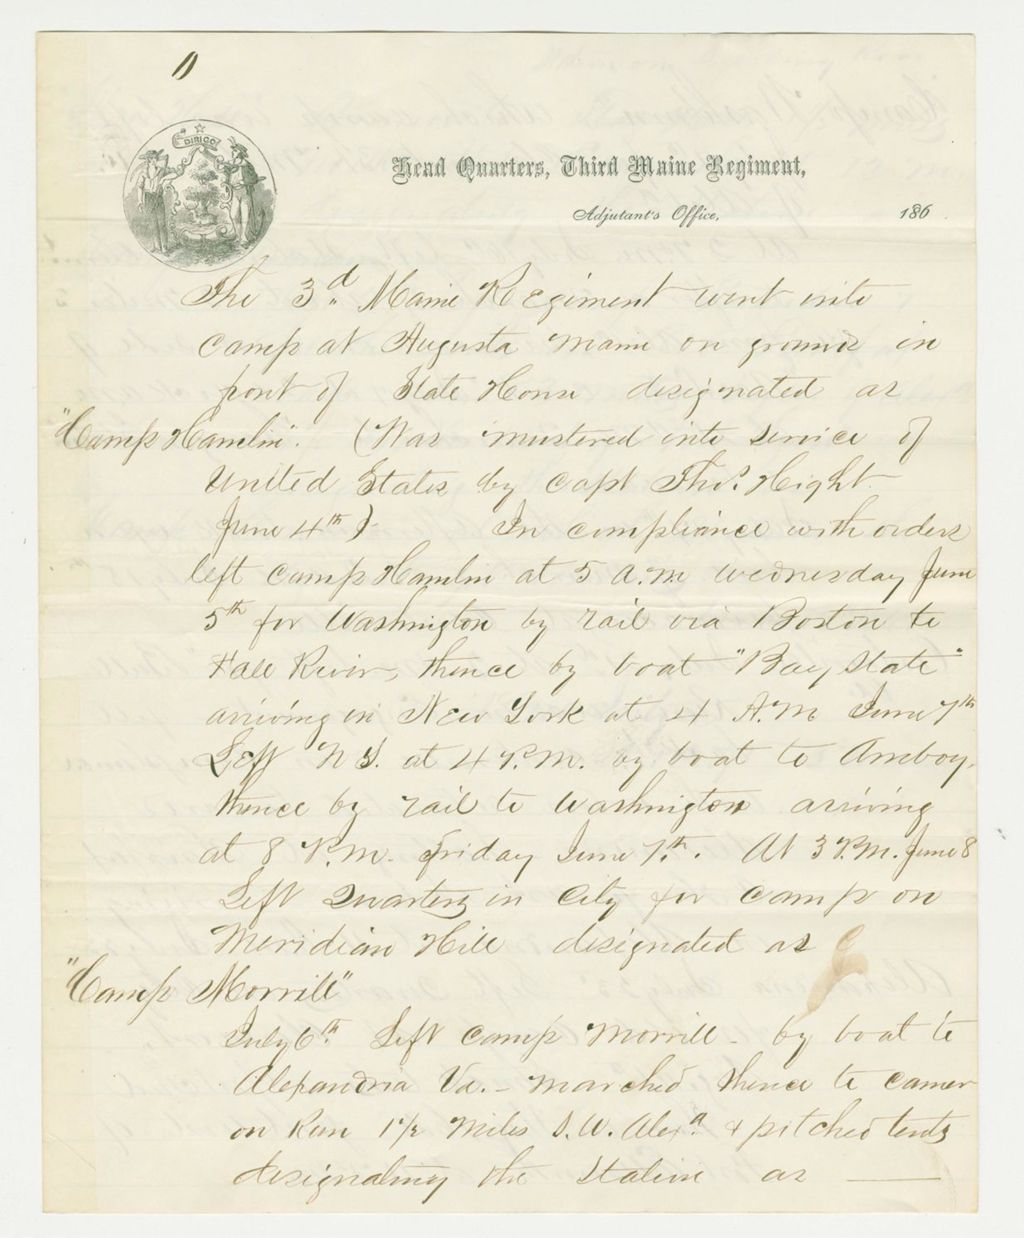 DIRIGO
Head Quarters, Third Maine Regiment,
Adjutant's Office, 186 .
The 3d. Maine Regiment went into
camp at Augusta Maine on grounds in
front of State House designated as
"Camp Hamlin". (Was mustered into service of
United States by Capt Thos. Hight
June 4th) In compliance with orders
left camp Hamlin at 5 A.M Wednesday June
5th for Washington by rail via Boston to
Fall River, thence by boat "Bay State"
arriving in New York at 4 A.M June 7th
Left N Y. at 4 P.M. by boat to Amboy,
thence by rail to Washington arriving
at 8 P.M. Friday June 7th. At 3 P.M. June 8
Left Quarters in City for camp on
Meridian Hill designated as
"Camp Morrill"
July 6th. Left Camp Morrill - by boat to
Alexandria Va. - marched thence to camer
on Run 1 1/2 Miles S.W. Alexa. & pitched tents
designating the Station as